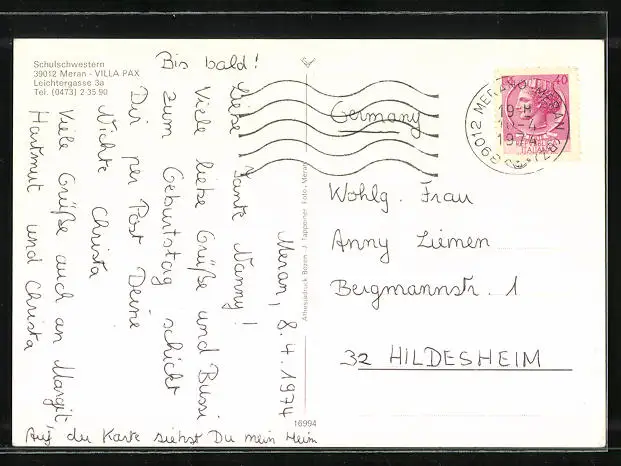 Schulschwestern
39012 Meran - VILLA PAX
Leichtergasse 3a
Tel. (0473) 2 35 90
Meran, 8.4.1974
Liebe Tante Nanny!
Viele liebe Grüße und Bussi
zum Geburtstag schickt
Dir per Post Deine
Nichte Christa
Viele Grüße auch an Margit,
Hartmut und Christa
Bis bald!
Auf der Karte siehst Du mein Heim
Athesiadruck Bozen - J. Tappeiner Foto, Meran
16994
Germany
40
39012 MERANO
19-H
10-4
1974
ITALIANA
Wohlg. Frau
Anny Ziemen
Bergmannstr. 1
32 HILDESHEIM